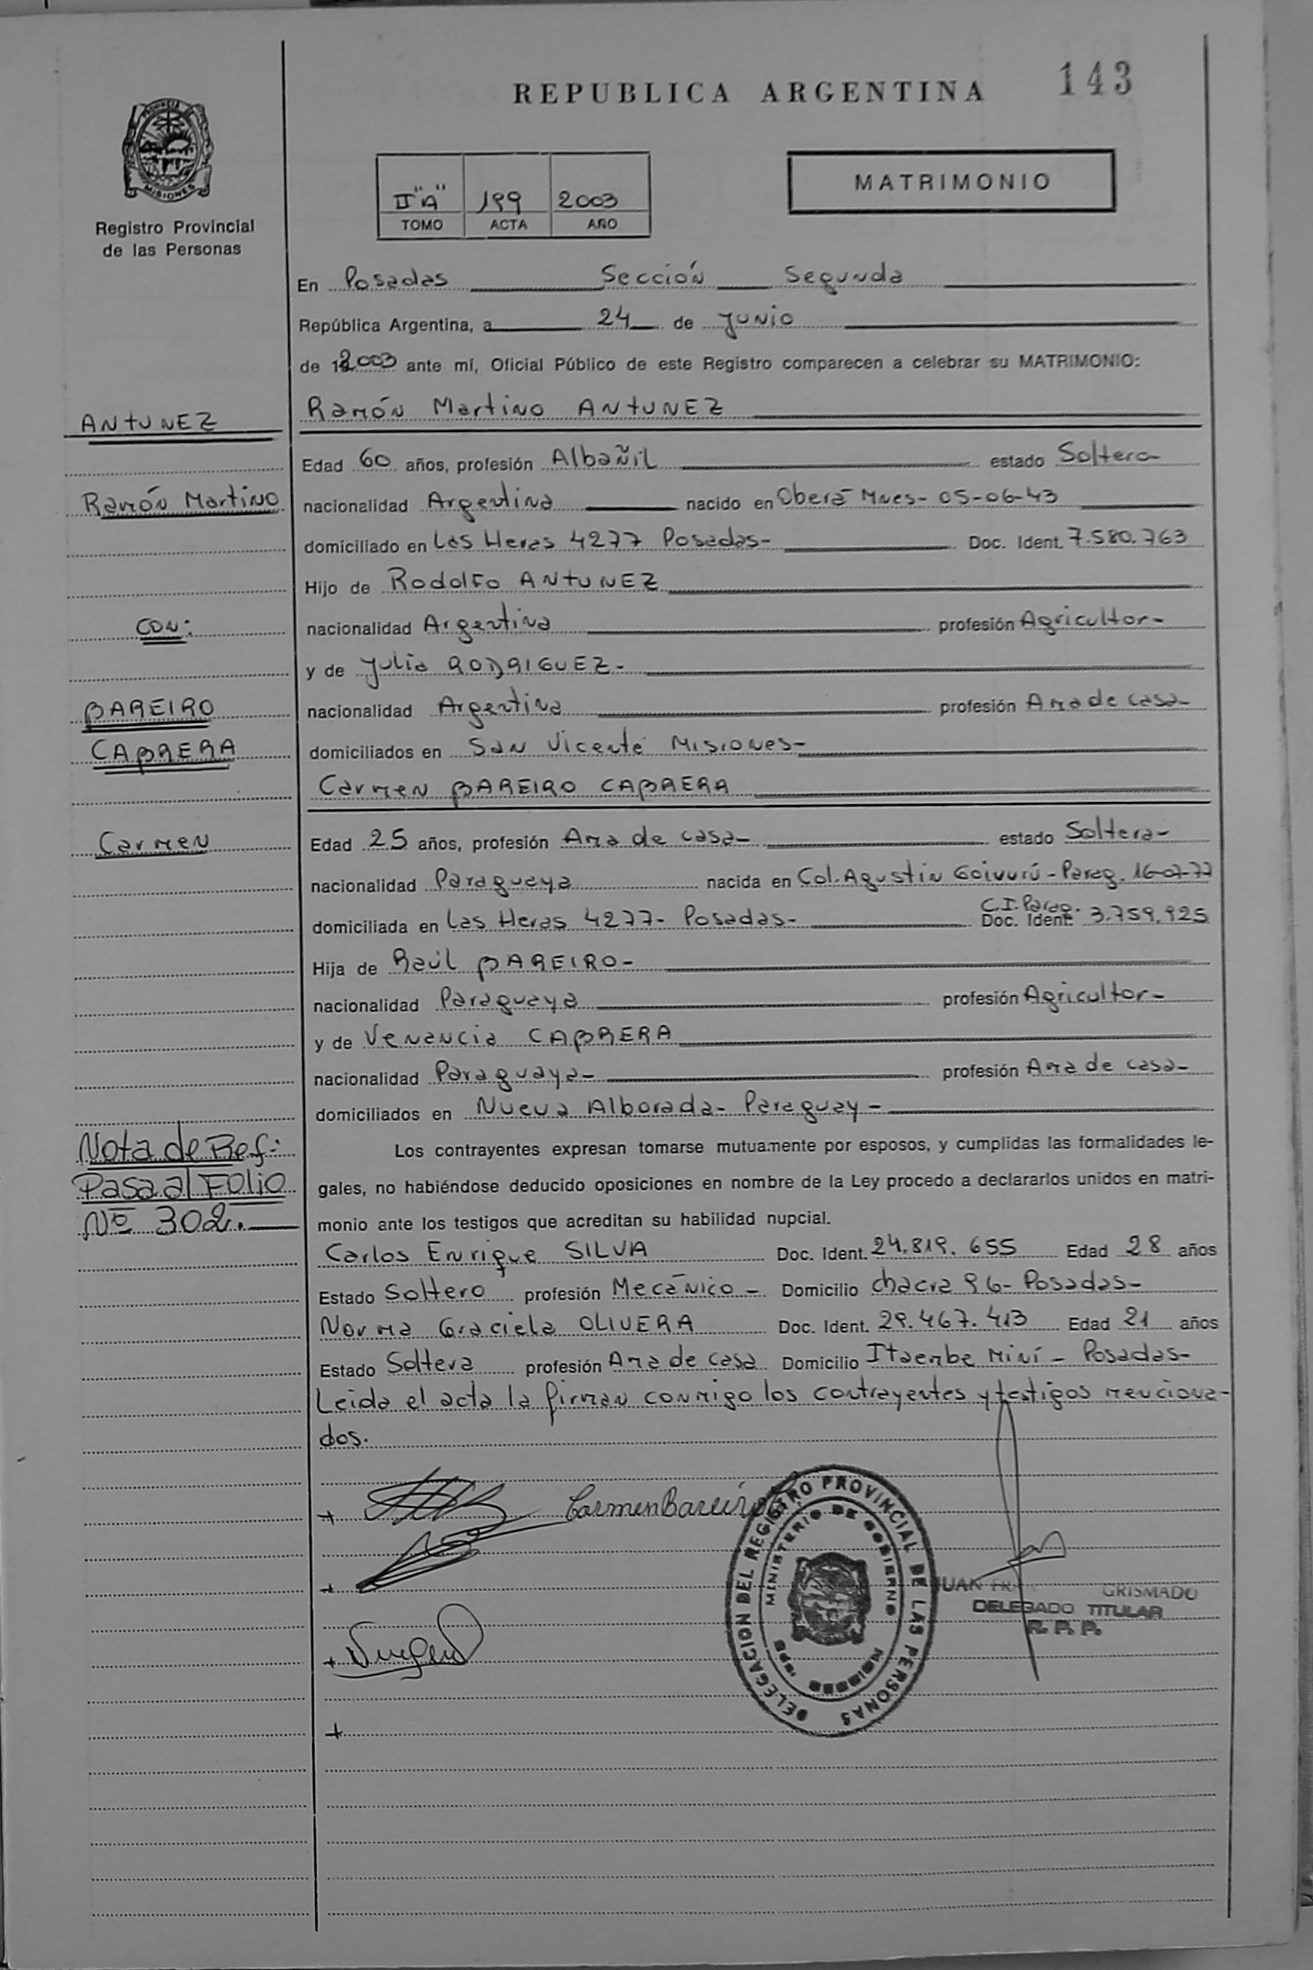 REPUBLICA ARGENTINA 143
MISIONES
Registro Provincial
de las Personas
II "A" 199 2003
TOMO ACTA AÑO
MATRIMONIO
En Posadas Sección Segunda
República Argentina, a 24 de Junio
de 2003 ante mí, Oficial Público de este Registro comparecen a celebrar su MATRIMONIO:
ANTUNEZ
Ramón Martino ANTUNEZ
Edad 60 años, profesión Albañil estado Soltero
Ramón Martino
nacionalidad Argentina nacido en Oberá Mnes- 05-06-43
domiciliado en Las Heras 4277 Posadas- Doc. Ident. 7.580.763
Hijo de Rodolfo ANTUNEZ
CON:
nacionalidad Argentina profesión Agricultor-
y de Julia RODRIGUEZ-
BAREIRO
nacionalidad Argentina profesión Ama de casa-
CABRERA
domiciliados en San Vicente Misiones-
Carmen BAREIRO CABRERA
Carmen
Edad 25 años, profesión Ama de casa- estado Soltera-
nacionalidad Paraguaya nacida en Col. Agustin Goiburú- Parag. 16-07-77
C.I. Parag.
domiciliada en Las Heras 4277- Posadas- Doc. Ident. 3.759.925
Hija de Raúl BAREIRO-
nacionalidad Paraguaya profesión Agricultor-
y de Venancia CABRERA
nacionalidad Paraguaya- profesión Ama de casa-
domiciliados en Nueva Alborada- Paraguay-
Nota de Ref:
Pasa al Folio
Nº 302.
Los contrayentes expresan tomarse mutuamente por esposos, y cumplidas las formalidades le-
gales, no habiéndose deducido oposiciones en nombre de la Ley procedo a declararlos unidos en matri-
monio ante los testigos que acreditan su habilidad nupcial.
Carlos Enrique SILVA Doc. Ident. 24.819.655 Edad 28 años
Estado Soltero profesión Mecánico- Domicilio chacra 96- Posadas-
Norma Graciela OLIVERA Doc. Ident. 29.467.413 Edad 21 años
Estado Soltera profesión Ama de casa Domicilio Itaembe Miní- Posadas-
Leida el acta la firman conmigo los contrayentes y testigos menciona-
dos.
Carmen Bareiro
DELEGACION DEL REGISTRO PROVINCIAL DE LAS PERSONAS
MINISTERIO DE GOBIERNO
JUAN GRISMADO
DELEGADO TITULAR
R. P. P.